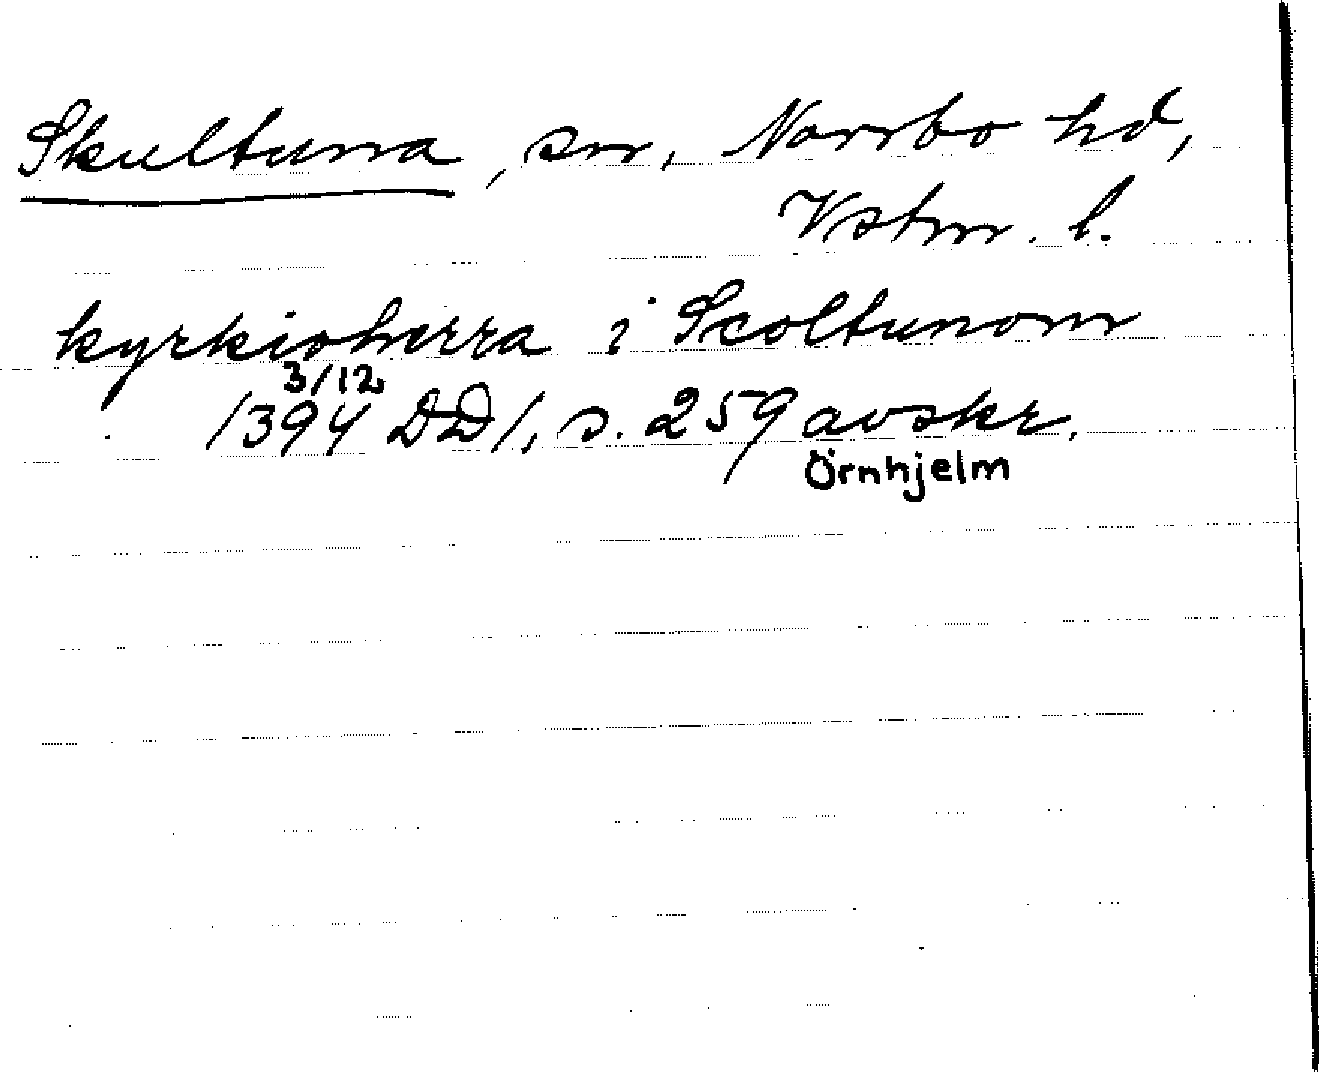 Skultuna, sn, Norrbo hd,
Vstm. l.
kyrkioherra i Scoltunom
3/12
1394 DD 1, s. 259 avskr.
Örnhjelm